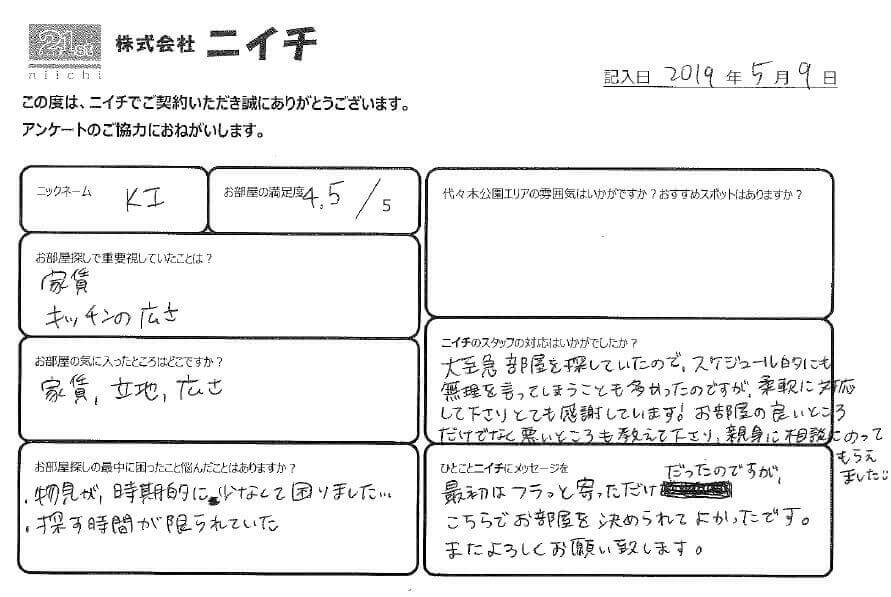 21st
niichi
株式会社 ニイチ
記入日 2019 年 5 月 9 日
この度は、ニイチでご契約いただき誠にありがとうございます。
アンケートのご協力におねがいします。
ニックネーム KI
お部屋の満足度 4,5 / 5
お部屋探しで重要視していたことは?
家賃
キッチンの広さ
お部屋の気に入ったところはどこですか?
家賃, 立地, 広さ
お部屋探しの最中に困ったこと悩んだことはありますか?
・物見が, 時期的に少なくて困りました…
・探す時間が限られていた
代々木公園エリアの雰囲気はいかがですか?おすすめスポットはありますか?
ニイチのスタッフの対応はいかがでしたか?
大至急部屋を探していたので, スケジュール的にも
無理を言ってしまうことも多かったのですが, 柔軟に対応
して下さりとても感謝しています! お部屋の良いところ
だけでなく悪いところも教えて下さり, 親身に相談にのって
もらえ
ました
ひとことニイチにメッセージを
最初はフラっと寄っただけだったのですが,
こちらでお部屋を決められてよかったです。
またよろしくお願い致します。